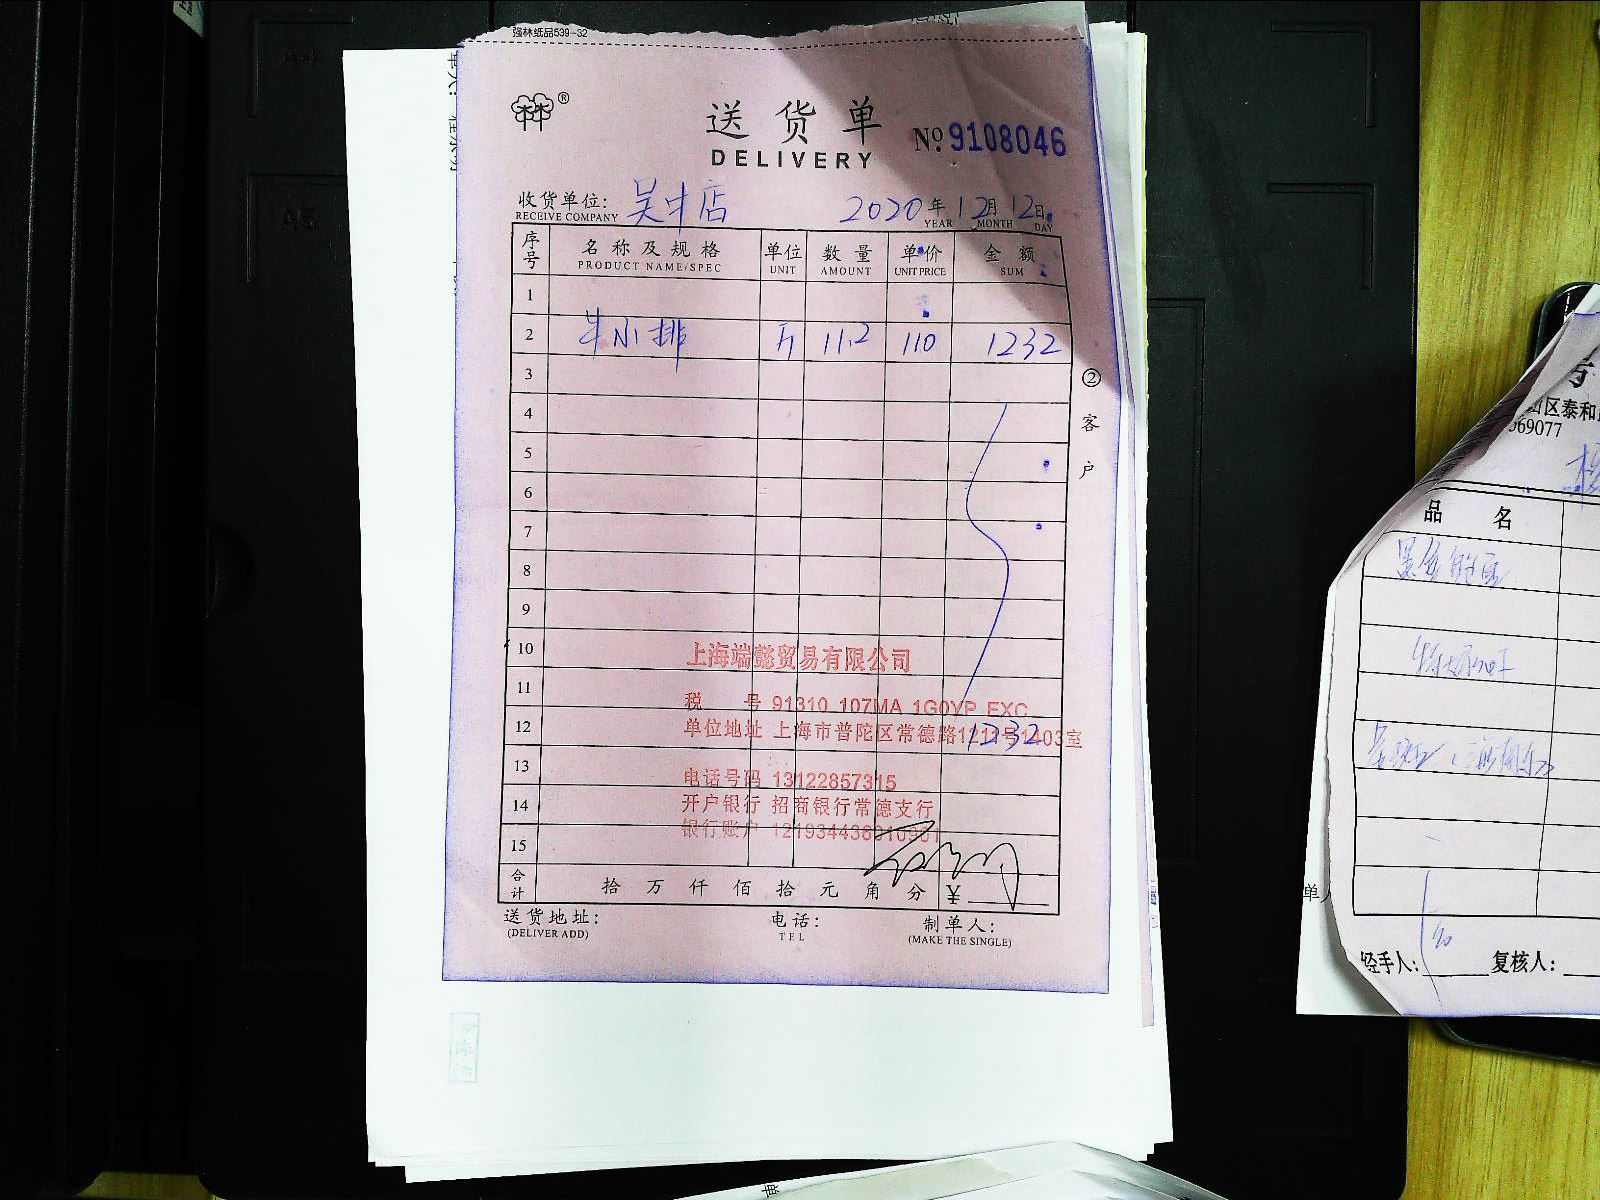 强林纸品539-32
®
送货单
№ 9108046
DELIVERY
收货单位: 吴中店 2020年12月12日
RECEIVE COMPANY YEAR MONTH DAY
序号 名称及规格 单位 数量 单价 金额
PRODUCT NAME/SPEC UNIT AMOUNT UNIT PRICE SUM
1
2 牛小排 斤 11.2 110 1232
3
②客户
4
5
6
7
8
9
10 上海端懿贸易有限公司
11 税 号 91310 107MA 1G0YP EXC
12 单位地址 上海市普陀区常德路1211号1403室
1232
13 电话号码 13122857315
14 开户银行 招商银行常德支行
银行账户
15
合计 拾 万 仟 佰 拾 元 角 分 ¥
送货地址: 电话: 制单人:
(DELIVER ADD) TEL (MAKE THE SINGLE)
区泰和
69077
品 名
经手人: 复核人:
A4
A5